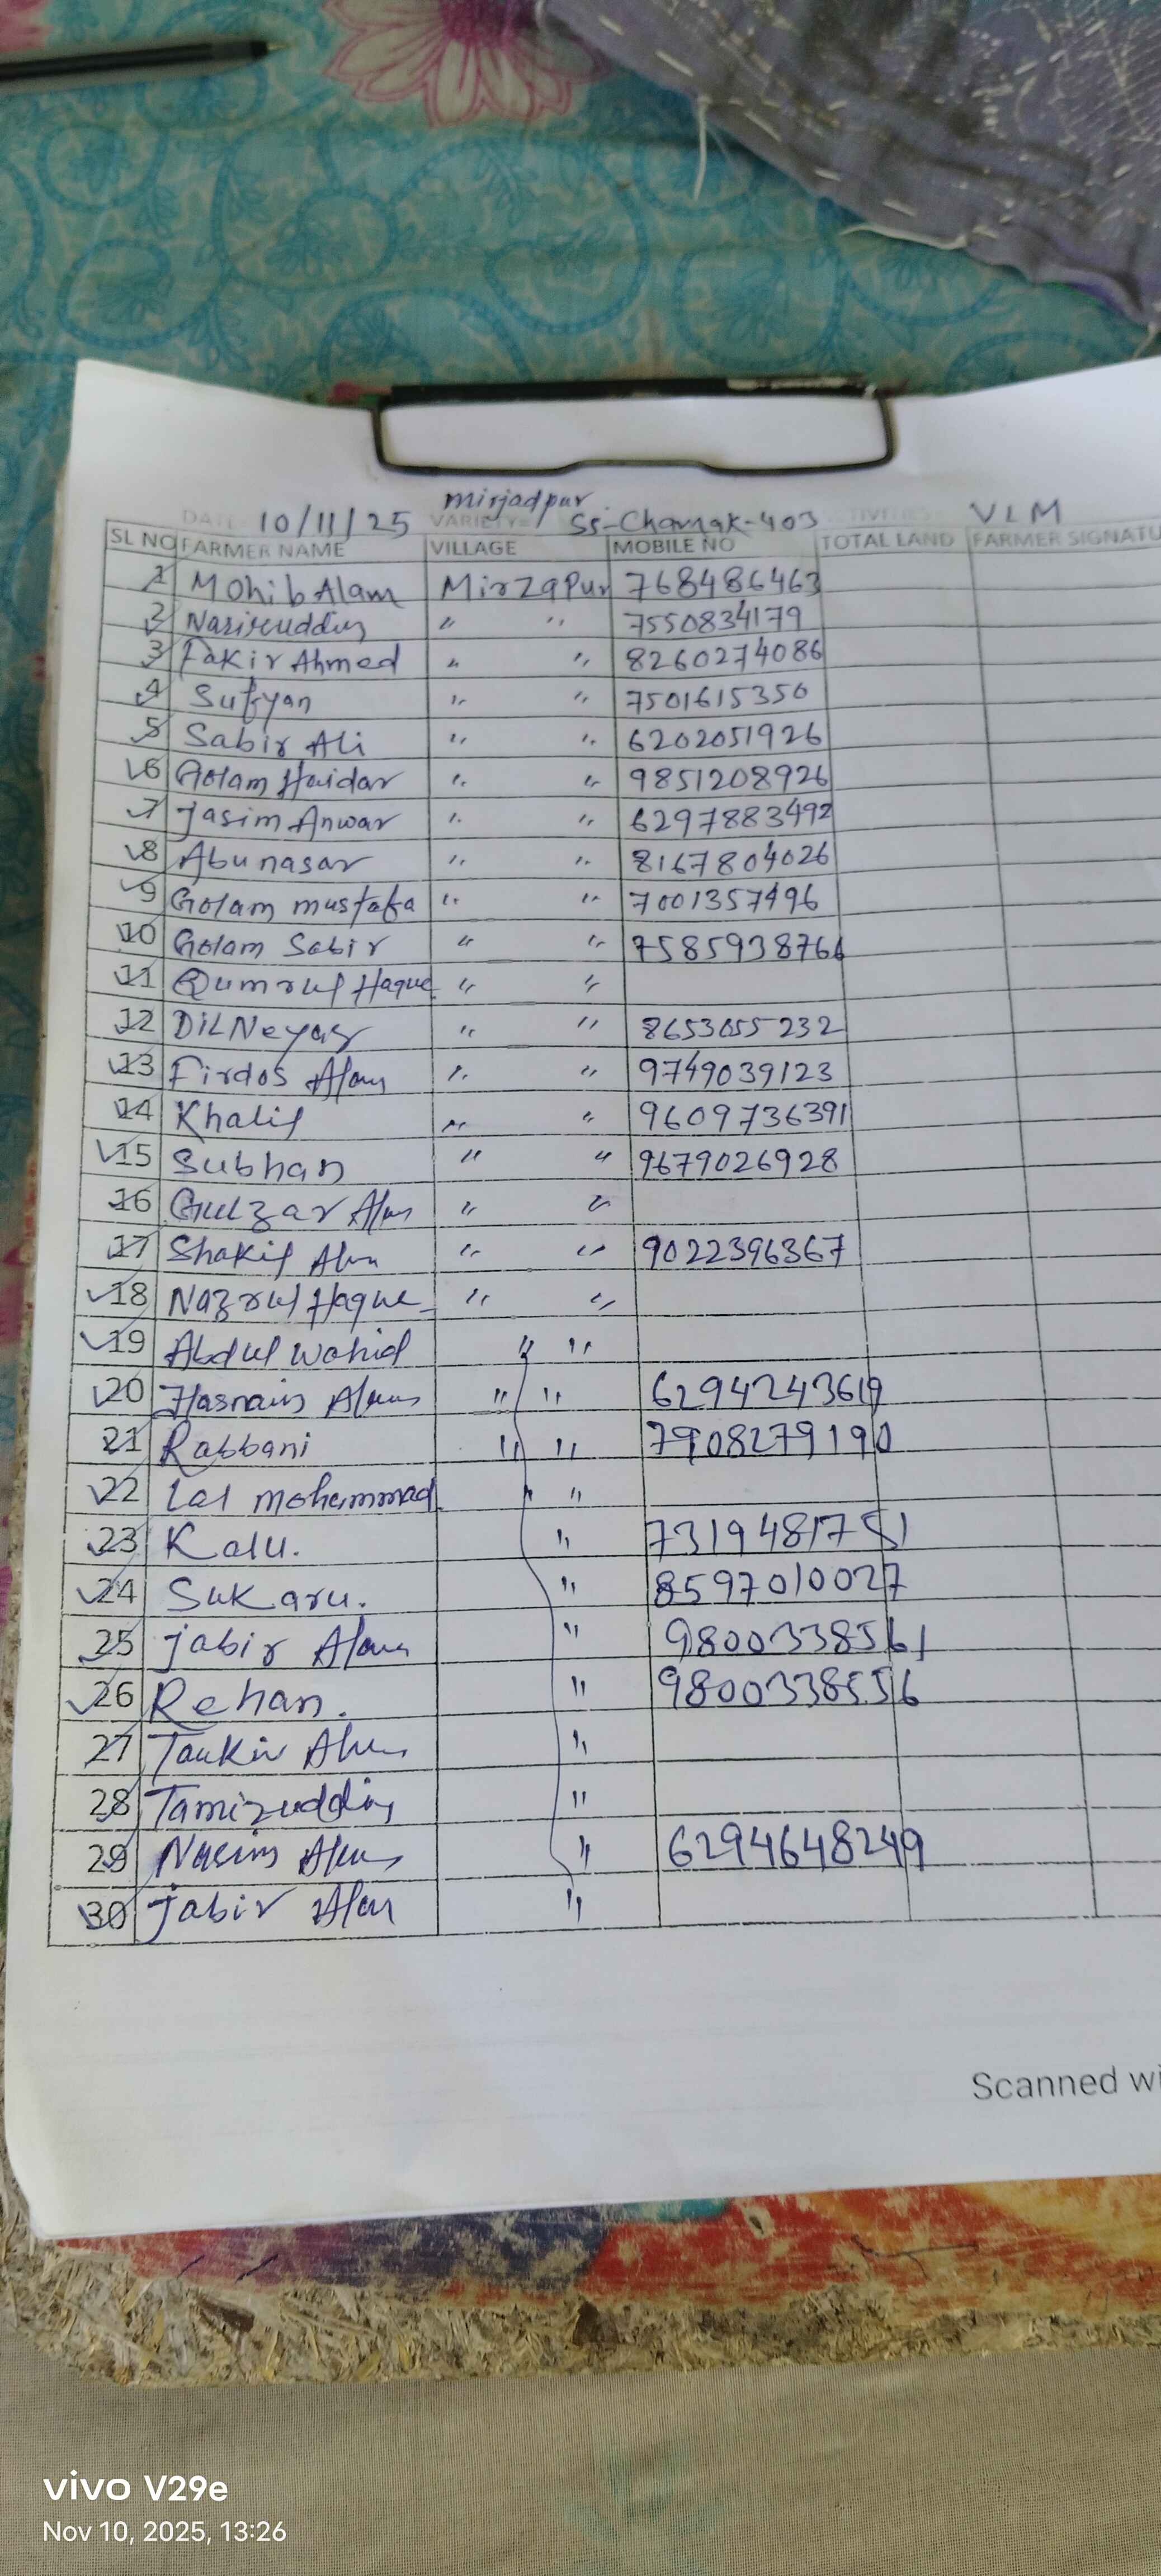 mirjadpur
DATE 10/11/25 VARIETY= SS-Chamak-403 VLM
SL NO FARMER NAME VILLAGE MOBILE NO TOTAL LAND FARMER SIGNATU
1 Mohib Alam Mirzapur 768486463
2 Nasiruddin " " 7550834179
3 Fakir Ahmed " " 8260274086
4 Sufyan " " 7501615350
5 Sabir Ali " " 6202051926
6 Golam Haidar " " 9851208926
7 Jasim Anwar " " 6297883492
8 Abunasar " " 8167804026
9 Golam mustafa " " 7001357496
10 Golam Sabir " " 7585938766
11 Qumrul Haque " "
12 DilNeyaz " " 8653055232
13 Firdos Alam " " 9749039123
14 Khalil " " 9609736391
15 Subhan " " 9679026928
16 Gulzar Alam " "
17 Shakil Alam " " 9022396367
18 Nazrul Haque " "
19 Abdul Wahid " "
20 Hasnain Alam " " 6294243619
21 Rabbani " " 7908279190
22 Lal mohammad " "
23 Kalu. " 7319481751
24 Sukaru. " 8597010027
25 Jabir Alam " 9800338561
26 Rehan. " 9800338556
27 Taukir Alam "
28 Tamizuddin "
29 Nasim Alam " 6294648249
30 Jabir Alam "
Scanned wi
vivo V29e
Nov 10, 2025, 13:26